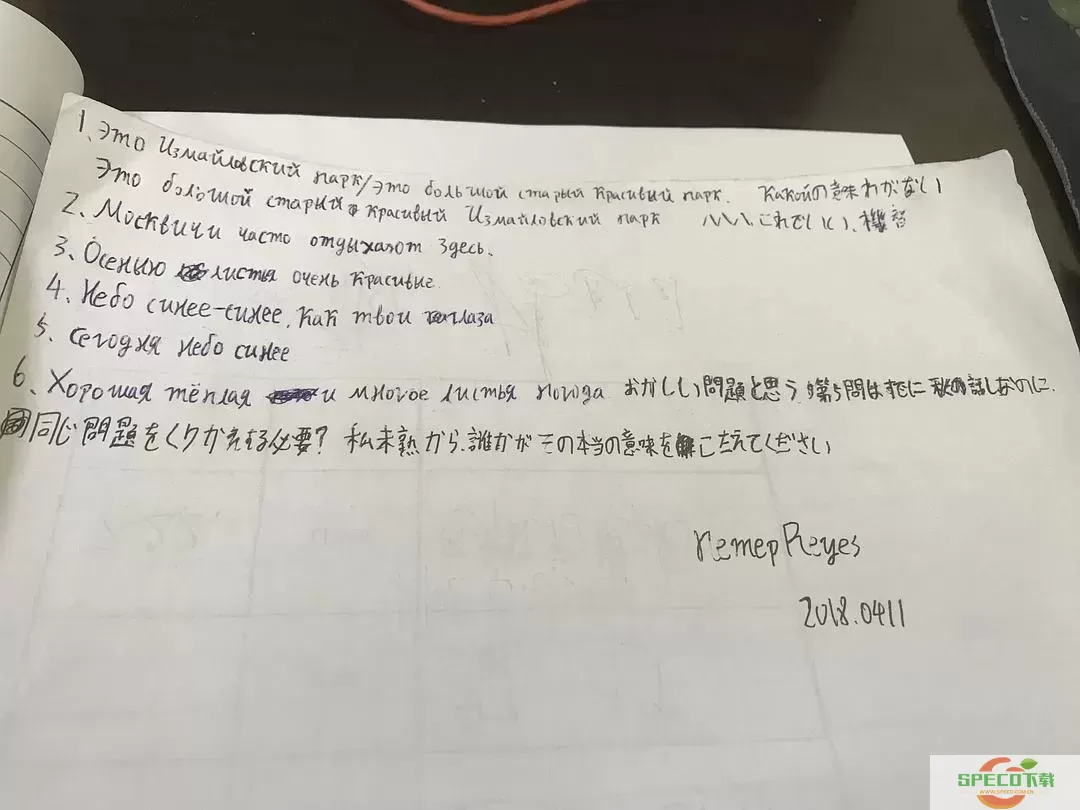 1、Это Измайловский парк/это большой старый красивый парк. Какойの意味わがない
Это большой старый красивый Измайловский парк ハハハ、これでいい、機智
2、Москвичи часто отдыхают здесь.
3、Осенью листья очень красивые.
4、Небо синее-синее, как твои глаза
5、сегодня небо синее
6、Хорошая тёплая и многое листья погода おかしい問題と思う 第5問はすでに秋の話しなのに、
同じ問題をくりかえする必要? 私未熟から、誰かがその本当の意味をこたえてください
петерReyes
2018.0411
SPECO下载
WWW.SPECO.COM.CN